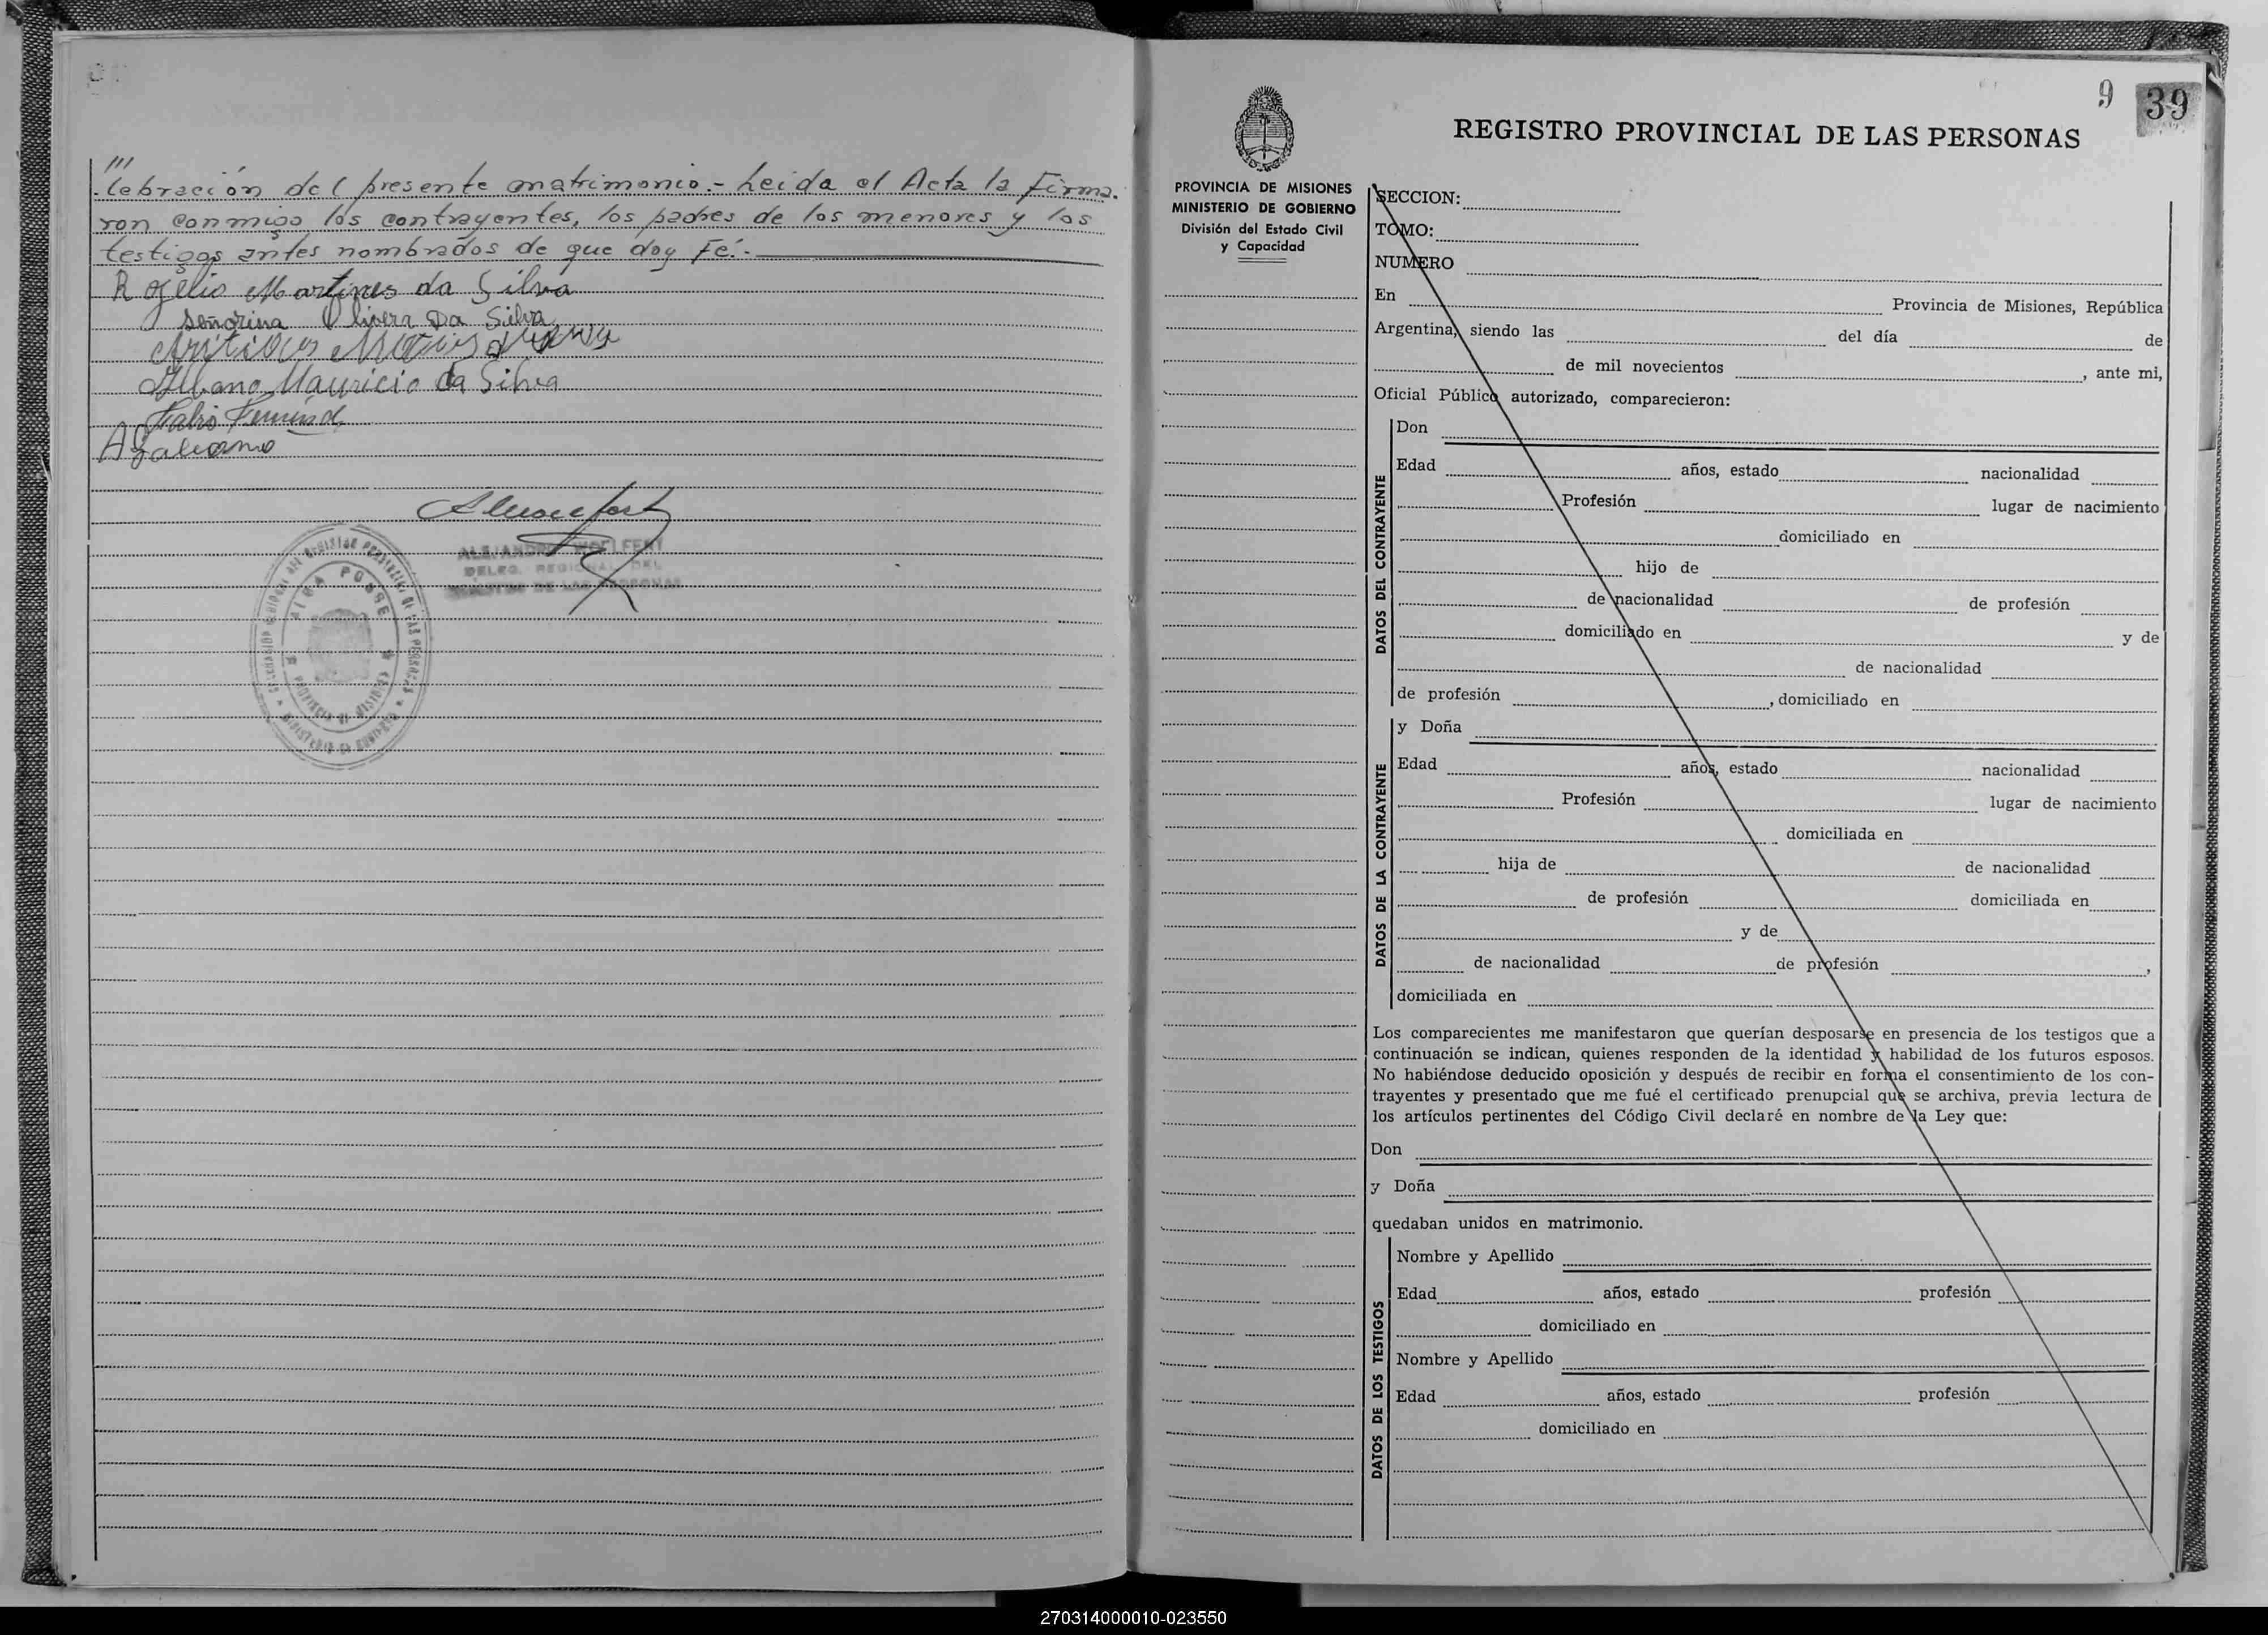 ///
.lebración del presente matrimonio.- Leida el Acta la firma-
ron conmigo los contrayentes, los padres de los menores y los
testigos antes nombrados de que doy Fé.-
Rogelio Martines da Silva
Señorina Olivera Da Silva
Albano Mauricio da Silva
ALEJANDRO WOELFERT
DELEG. REGIONAL DEL
REGISTRO DE LAS PERSONAS
ALBA POSSE
PROVINCIA DE MISIONES
9 39
REGISTRO PROVINCIAL DE LAS PERSONAS
PROVINCIA DE MISIONES
MINISTERIO DE GOBIERNO
División del Estado Civil
y Capacidad
SECCION:
TOMO:
NUMERO
En Provincia de Misiones, República
Argentina, siendo las del día de
de mil novecientos , ante mi,
Oficial Público autorizado, comparecieron:
DATOS DEL CONTRAYENTE
Don
Edad años, estado nacionalidad
Profesión lugar de nacimiento
domiciliado en
hijo de
de nacionalidad de profesión
domiciliado en y de
de nacionalidad
de profesión , domiciliado en
DATOS DE LA CONTRAYENTE
y Doña
Edad años, estado nacionalidad
Profesión lugar de nacimiento
domiciliada en
hija de de nacionalidad
de profesión domiciliada en
y de
de nacionalidad de profesión ,
domiciliada en
Los comparecientes me manifestaron que querían desposarse en presencia de los testigos que a
continuación se indican, quienes responden de la identidad y habilidad de los futuros esposos.
No habiéndose deducido oposición y después de recibir en forma el consentimiento de los con-
trayentes y presentado que me fué el certificado prenupcial que se archiva, previa lectura de
los artículos pertinentes del Código Civil declaré en nombre de la Ley que:
Don
y Doña
quedaban unidos en matrimonio.
DATOS DE LOS TESTIGOS
Nombre y Apellido
Edad años, estado profesión
domiciliado en
Nombre y Apellido
Edad años, estado profesión
domiciliado en
270314000010-023550